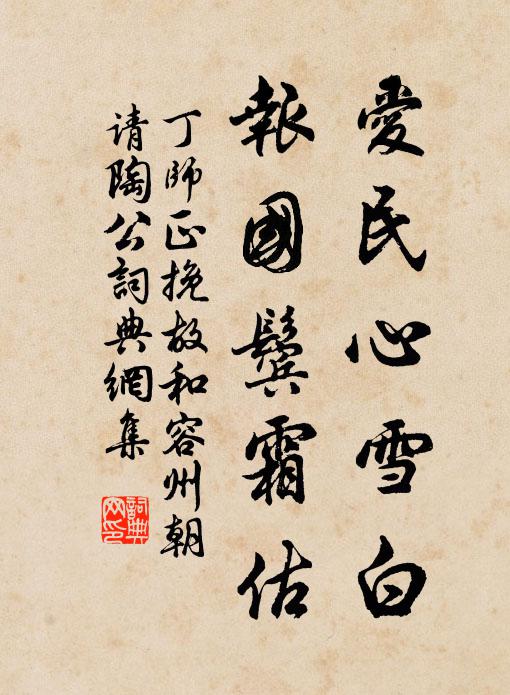 愛民心雪白
報國鬓霜估
丁師正挽故和容州朝
请陶公詞典網集
詞典
网印